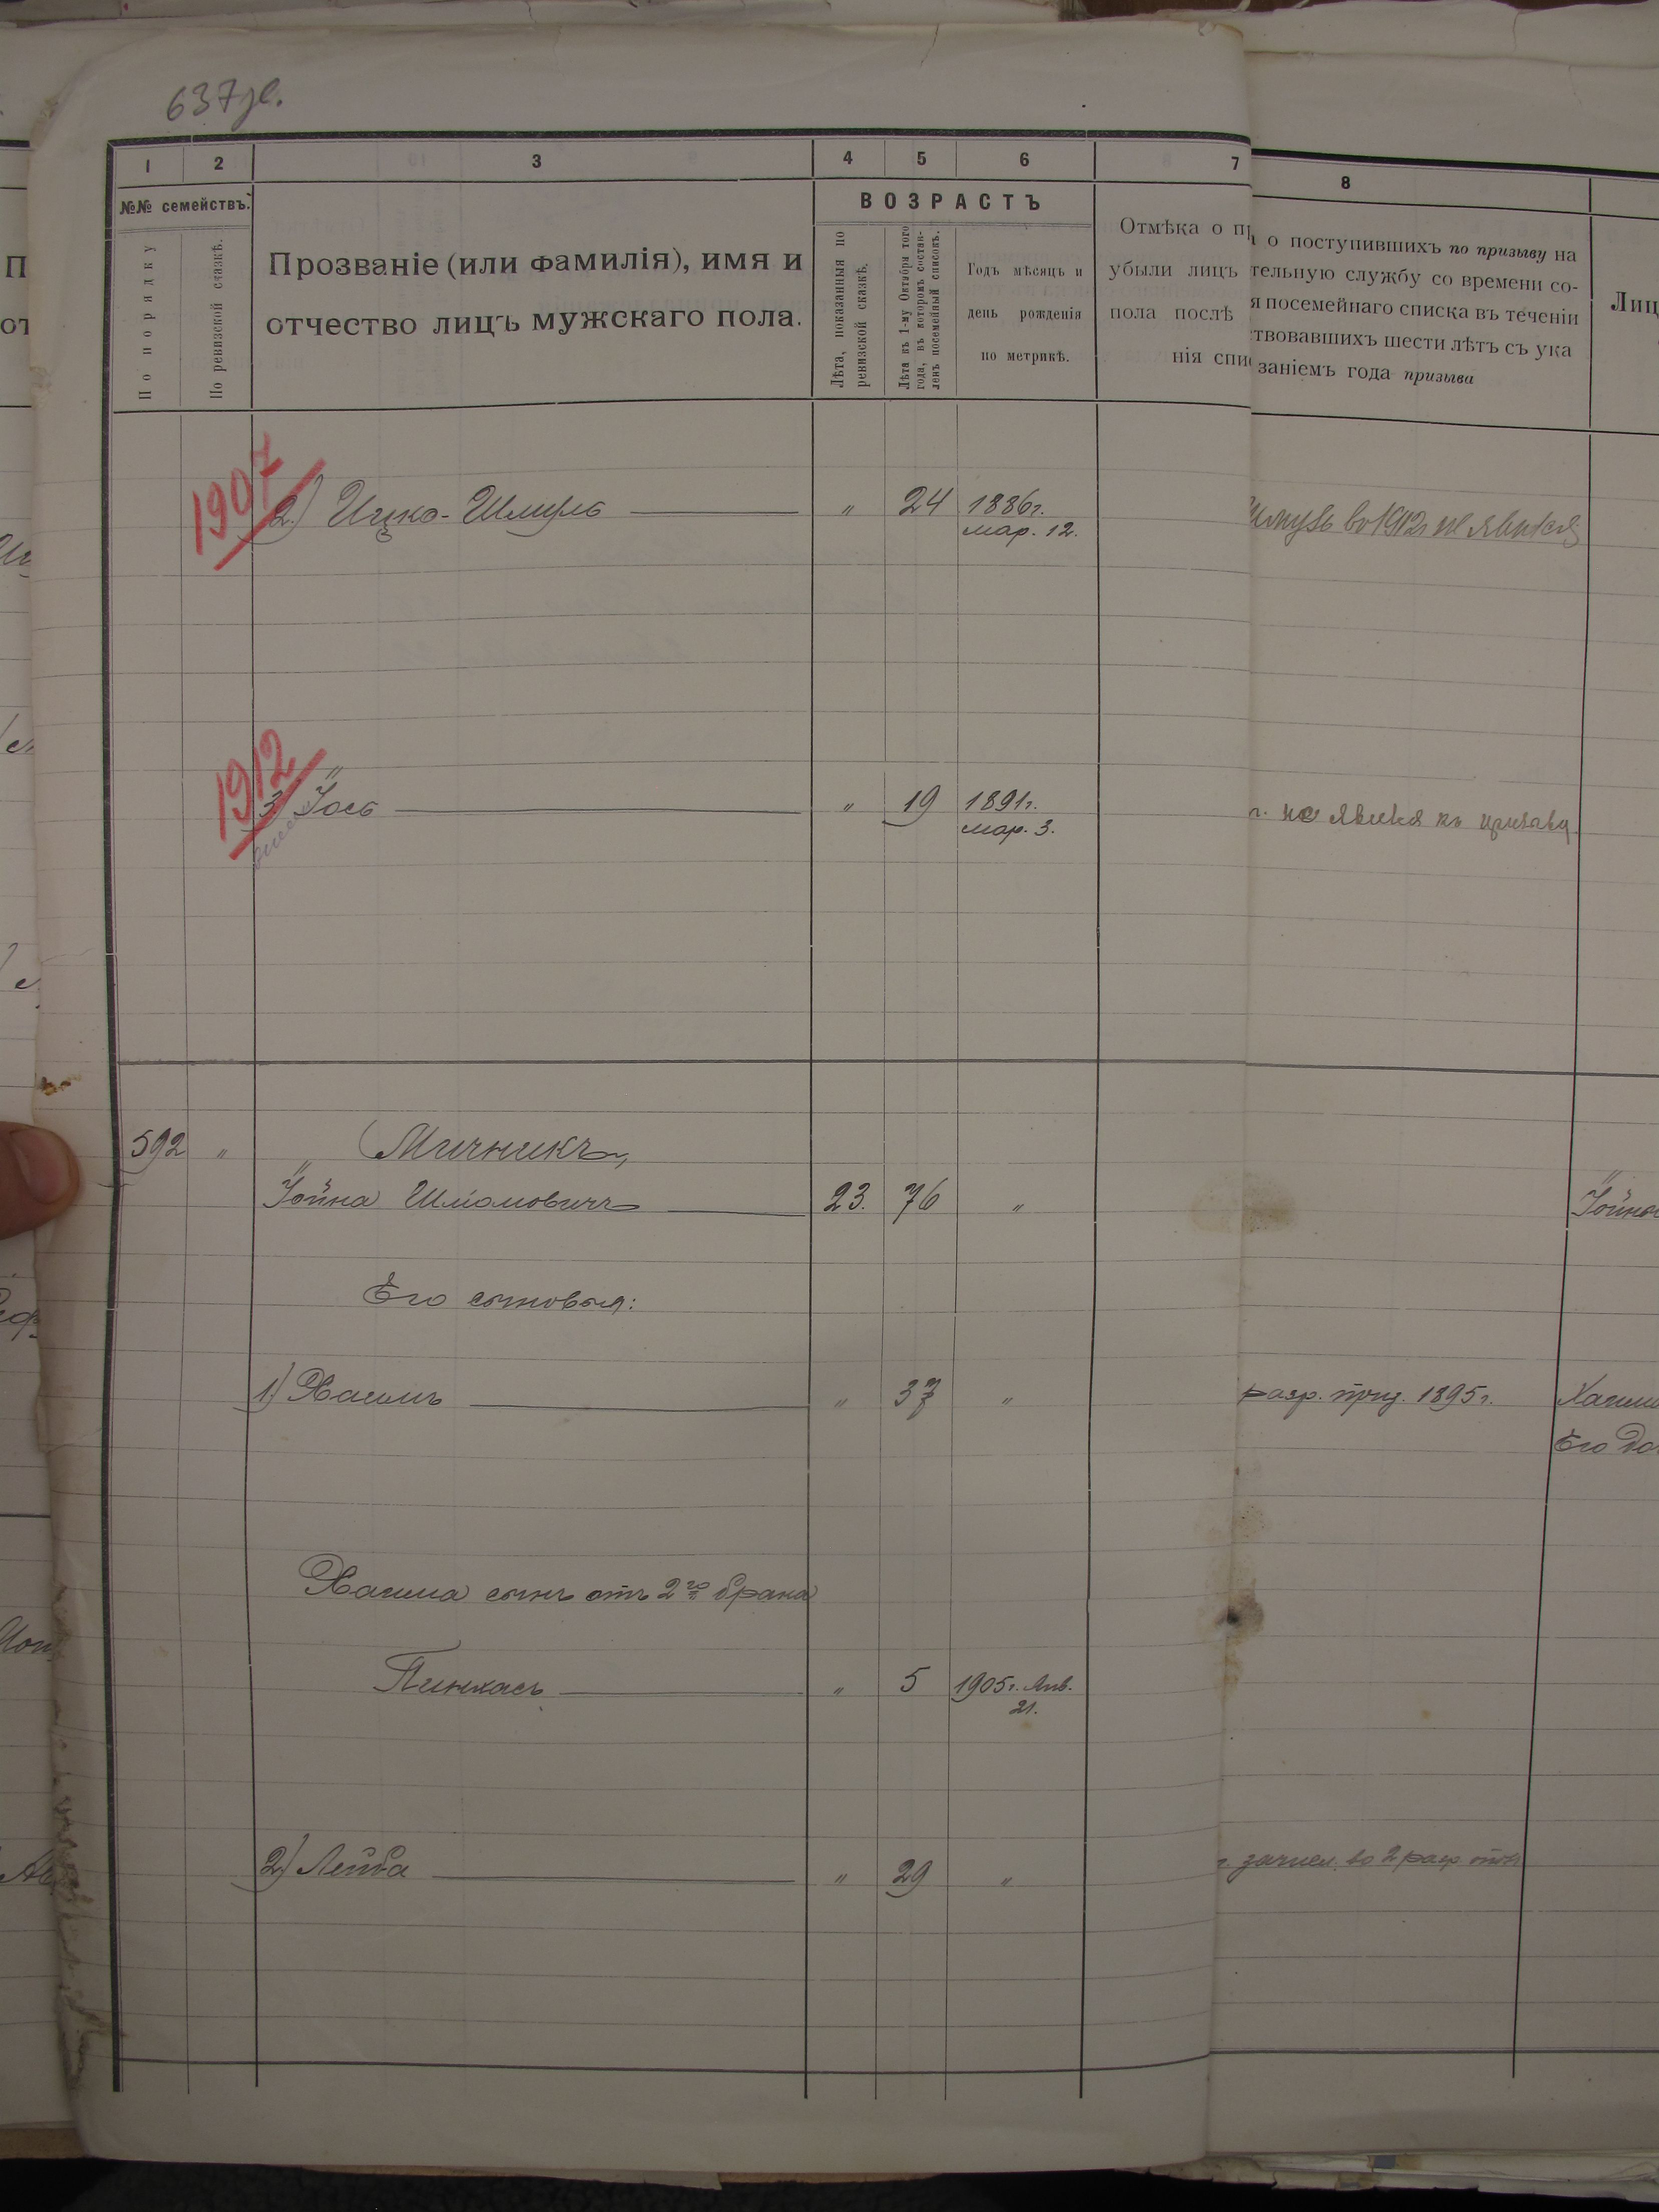 637
1 2 3 4 5 6 7 8
№№ семействъ.
По порядку
По ревизской сказкѣ.
Прозваніе (или фамилія), имя и
отчество лицъ мужскаго пола.
ВОЗРАСТЪ
Лѣта, показанныя по
ревизской сказкѣ.
Лѣта къ 1-му Октября того
года, въ которомъ состав-
ленъ посемейный списокъ.
Годъ мѣсяцъ и
день рожденія
по метрикѣ.
Отмѣка о
убыли лицъ
пола послѣ
нія
о поступившихъ по призыву на
тельную службу со времени со-
я посемейнаго списка въ теченіи
твовавшихъ шести лѣтъ съ ука
заніемъ года призыва
Лиц
1907
2) Ицко-Шмуль " 24 1886г.
мар. 12.
въ 1912г не явился
1912
3) Іось " 19 1891г.
мар. 3.
г. не явился къ призыву
592 " Мичникъ,
Іойна Шліомовичъ 23. 76 "
Іойна
Его сыновья:
1) Хаимъ " 37 " разр. приз. 1895г. Хаима
Его до
Хаима сынъ отъ 2го брака
Пинхасъ " 5 1905г. Янв.
21.
2) Лейба " 29 " г. зачисл. во 2 разр